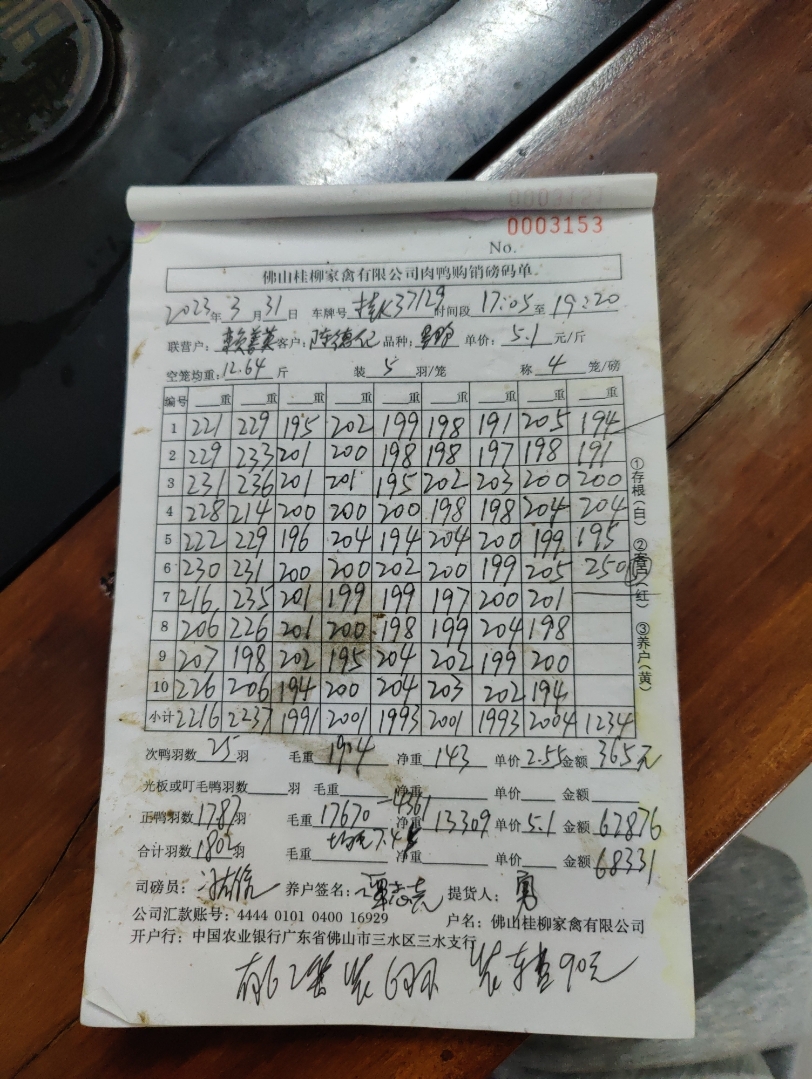 0003153
No.
佛山桂柳家禽有限公司肉鸭购销磅码单
2023年3月31日 车牌号 桂K37129 时间段 17:05至19:20
联营户: 客户: 陈德 品种: 单价: 5.1元/斤
空笼均重: 12.64斤 装5羽/笼 称4笼/磅
编号 重 重 重 重 重 重 重 重 重
1 221 229 195 202 199 198 191 205 194
2 229 233 201 200 198 198 197 198 191
3 231 236 201 201 195 202 203 200 200
4 228 214 200 200 200 198 198 204 204
5 222 229 196 204 194 204 200 199 195
6 230 231 200 200 202 200 199 205 250
7 216 235 201 199 199 197 200 201
8 206 226 201 200 198 199 204 198
9 207 198 202 195 204 202 199 200
10 226 206 194 200 204 203 202 194
小计 2216 2237 1991 2001 1993 2001 1993 2004 1234
次鸭羽数25羽 毛重 净重 143 单价2.55 金额365元
光板或叮毛鸭羽数 羽 毛重 净重 单价 金额
-4361
正鸭羽数1787羽 毛重17670 净重13309 单价5.1 金额67876
合计羽数羽 毛重 净重 单价 金额68331
司磅员: 养户签名: 提货人:
公司汇款账号: 4444 0101 0400 16929 户名: 佛山桂柳家禽有限公司
开户行: 中国农业银行广东省佛山市三水区三水支行
有 装6羽 装车 90元
①存根(白) ②客户(红) ③养户(黄)